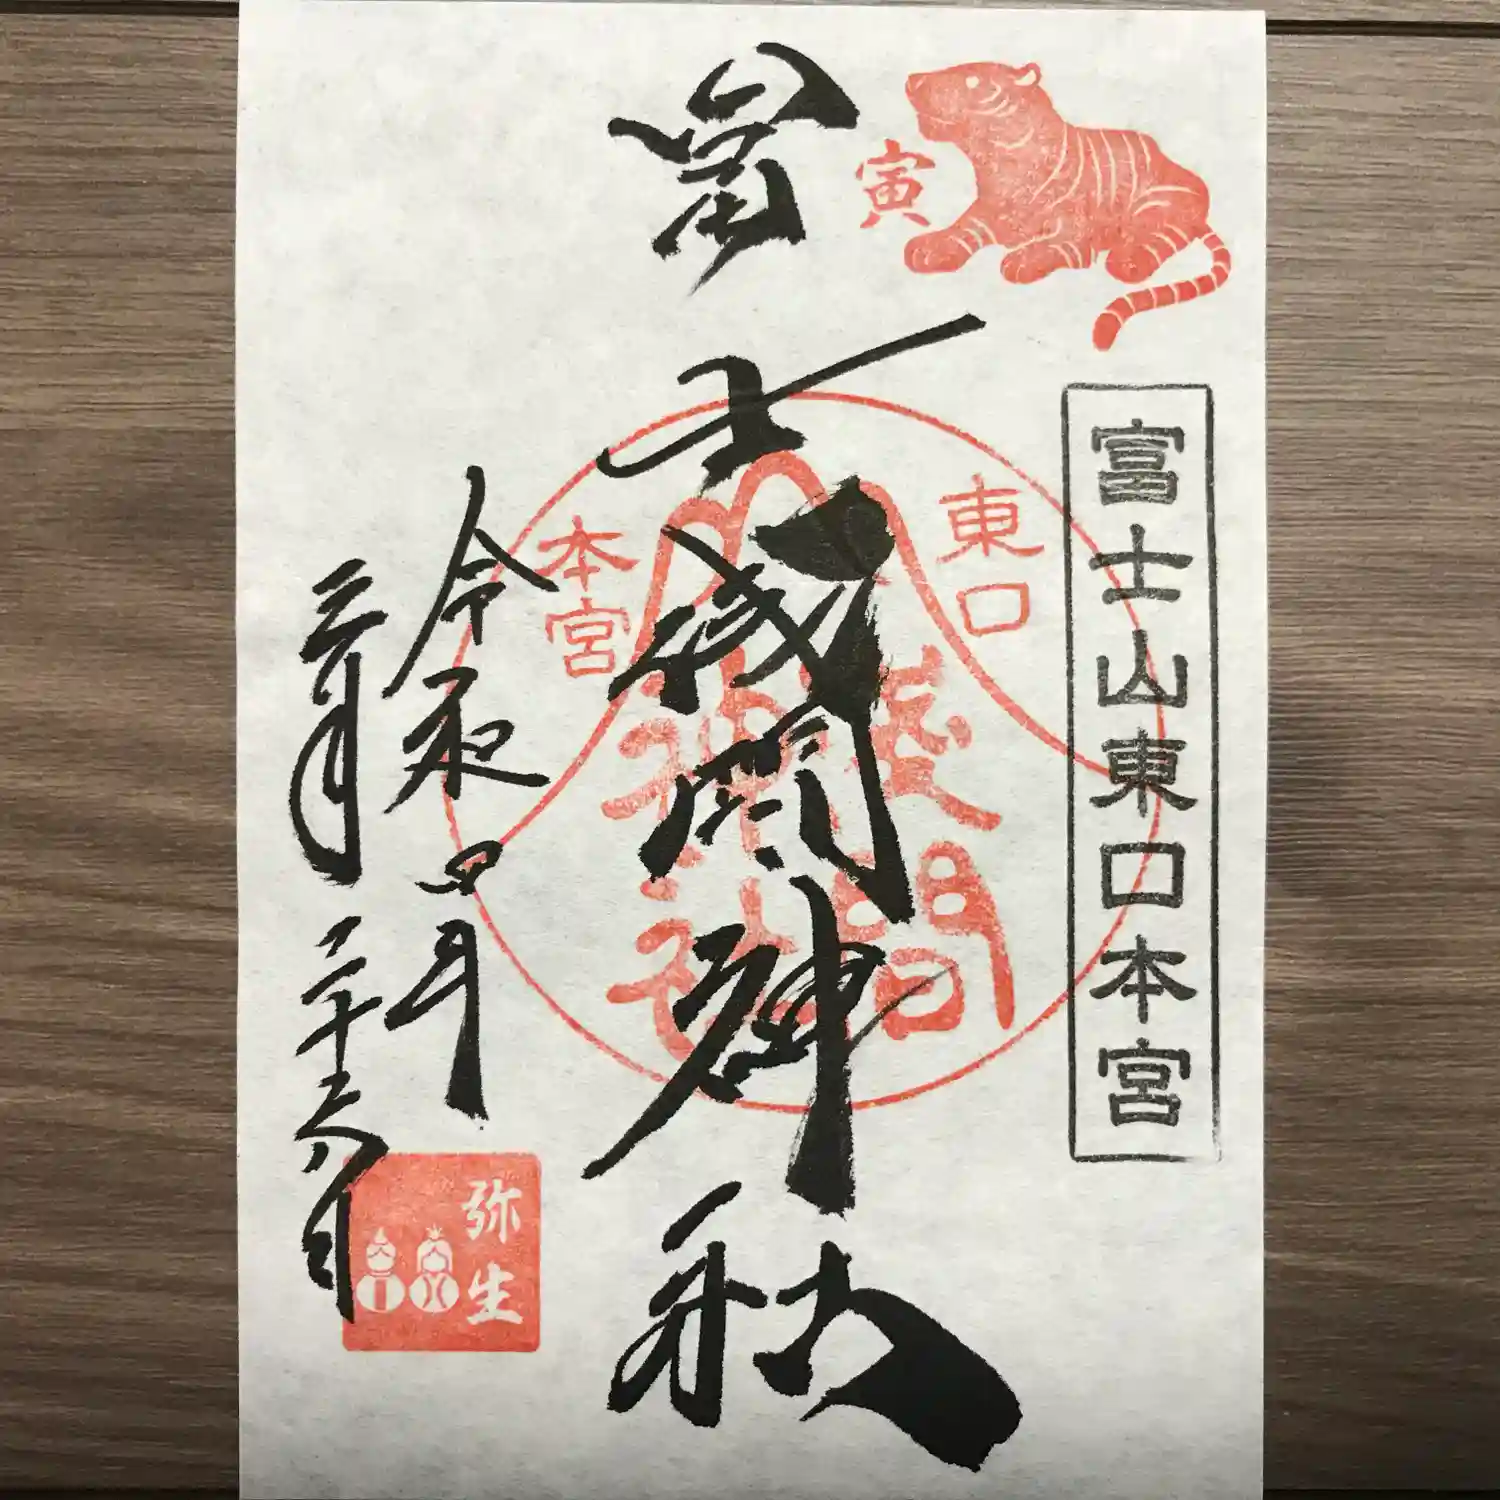 寅
富士山東口本宮
東口
本宮
冨士浅間神社
淺間
神社
令和四年
三月二十六日
弥生